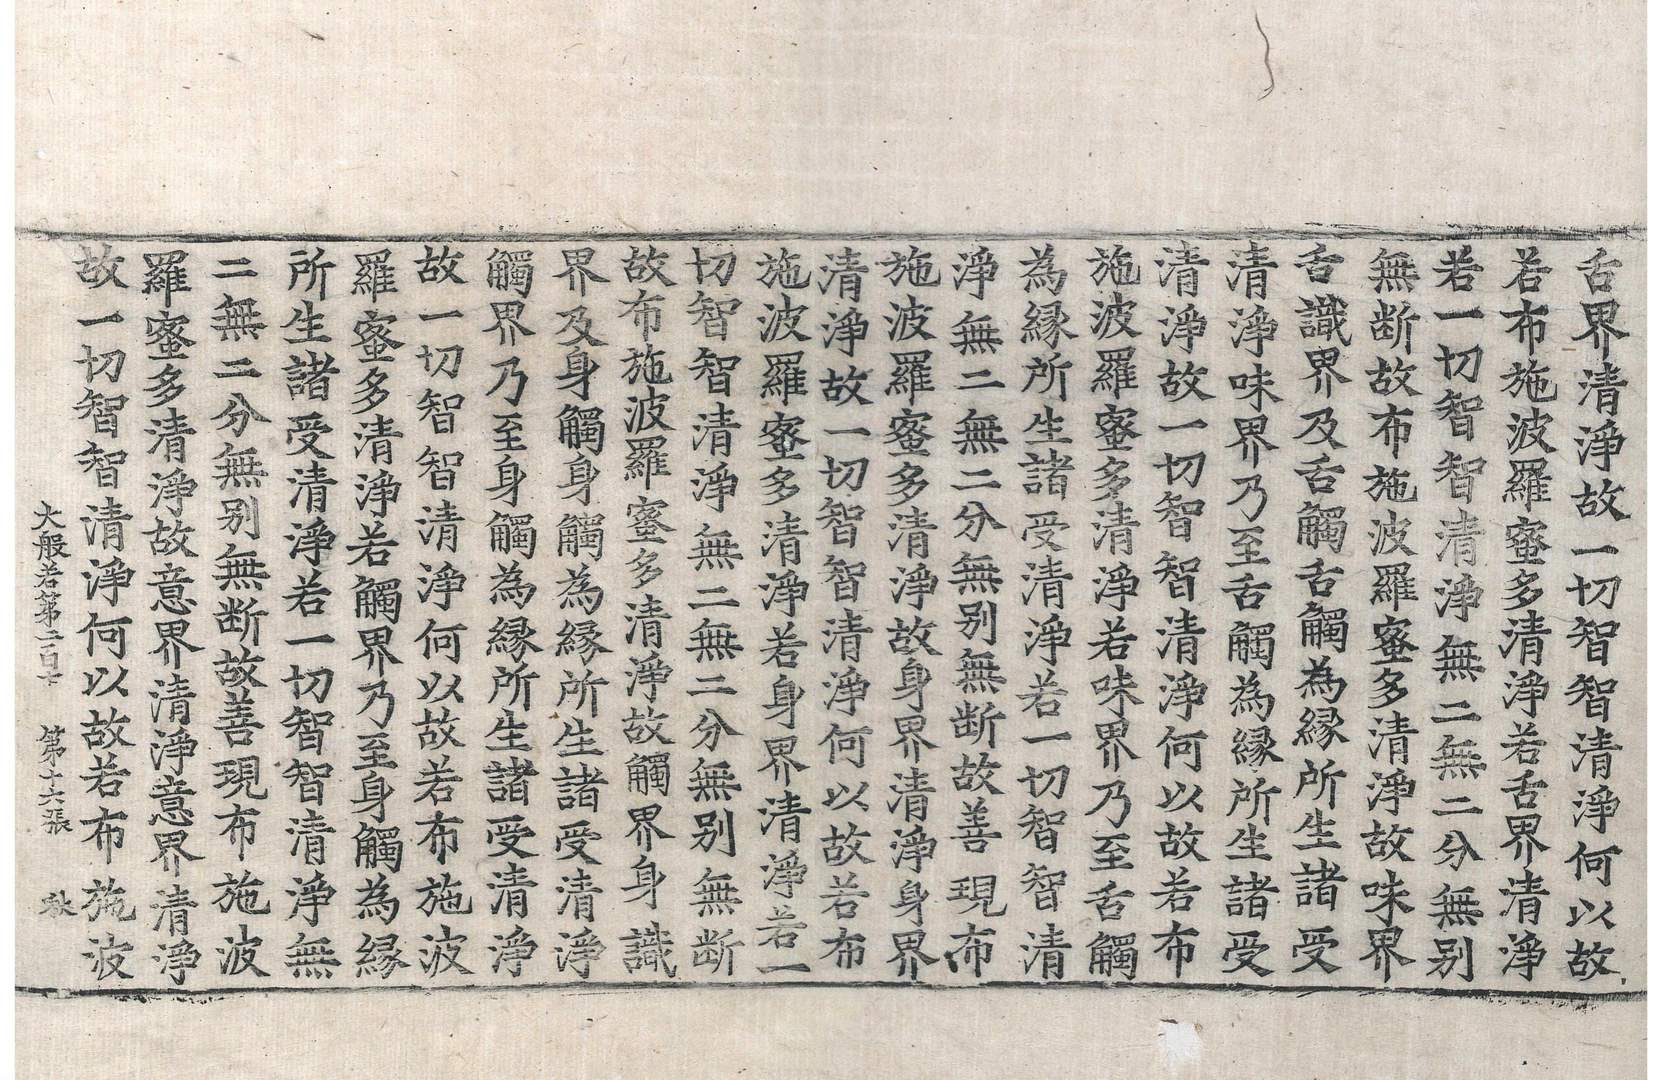 舌界清淨故一切智智清淨何以故
若布施波羅蜜多清淨若舌界清淨
若一切智智清淨無二無二分無別
無断故布施波羅蜜多清淨故味界
舌識界及舌觸舌觸為緣所生諸受
清淨味界乃至舌觸為緣所生諸受
清淨故一切智智清淨何以故若布
施波羅蜜多清淨若味界乃至舌觸
為緣所生諸受清淨若一切智智清
淨無二無二分無別無断故善現布
施波羅蜜多清淨故身界清淨身界
清淨故一切智智清淨何以故若布
施波羅蜜多清淨若身界清淨若一
切智智清淨無二無二分無別無断
故布施波羅蜜多清淨故觸界身識
界及身觸身觸為緣所生諸受清淨
觸界乃至身觸為緣所生諸受清淨
故一切智智清淨何以故若布施波
羅蜜多清淨若觸界乃至身觸為緣
所生諸受清淨若一切智智清淨無
二無二分無別無断故善現布施波
羅蜜多清淨故意界清淨意界清淨
故一切智智清淨何以故若布施波
大般若第二百十 第十六張 秋